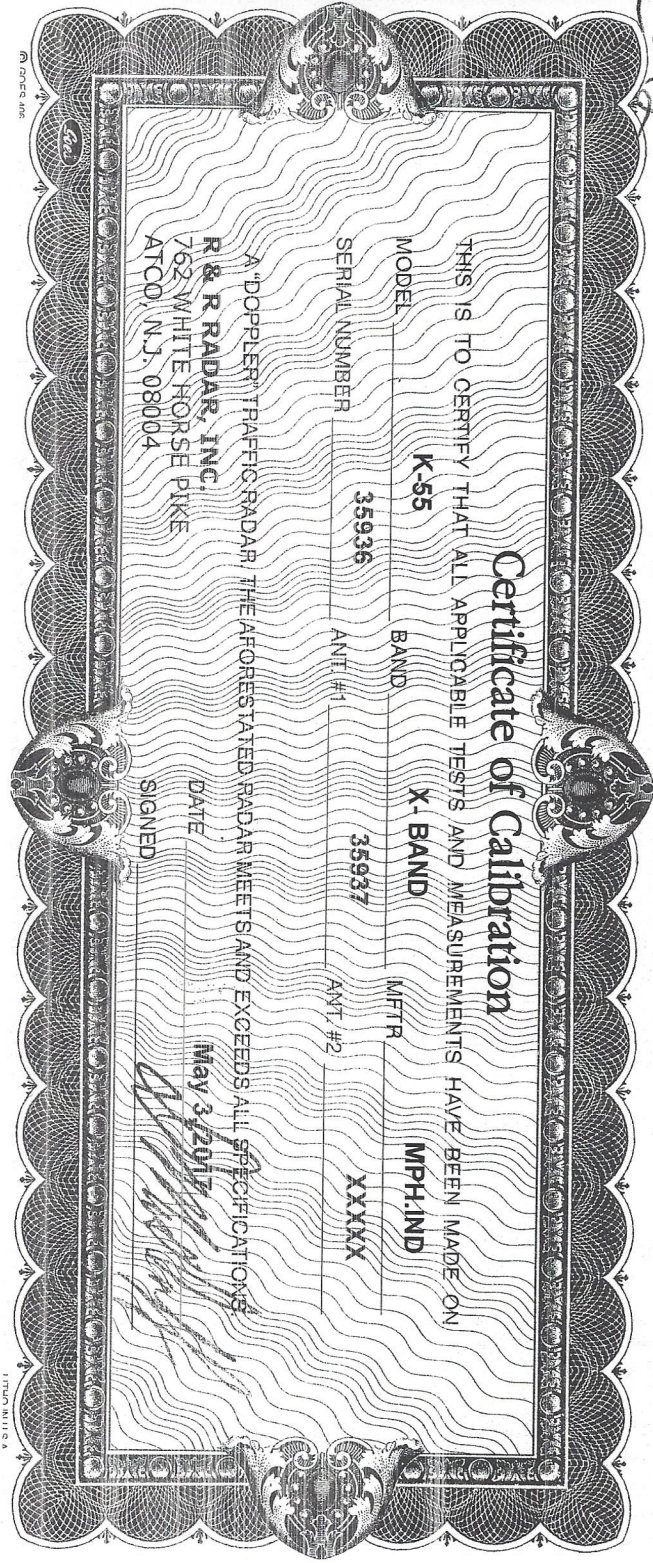 Certificate of Calibration
THIS IS TO CERTIFY THAT ALL APPLICABLE TESTS AND MEASUREMENTS HAVE BEEN MADE ON
MODEL K-55 BAND X- BAND MFTR MPH.IND
SERIAL NUMBER 35936 ANT. #1 35937 ANT. #2 XXXXX
A "DOPPLER" TRAFFIC RADAR. THE AFORESTATED RADAR MEETS AND EXCEEDS ALL SPECIFICATIONS.
R & R RADAR, INC.
762 WHITE HORSE PIKE
ATCO, N.J. 08004
DATE May 3, 2017
SIGNED
Goes
© GOES 406
LITHO IN U.S.A.